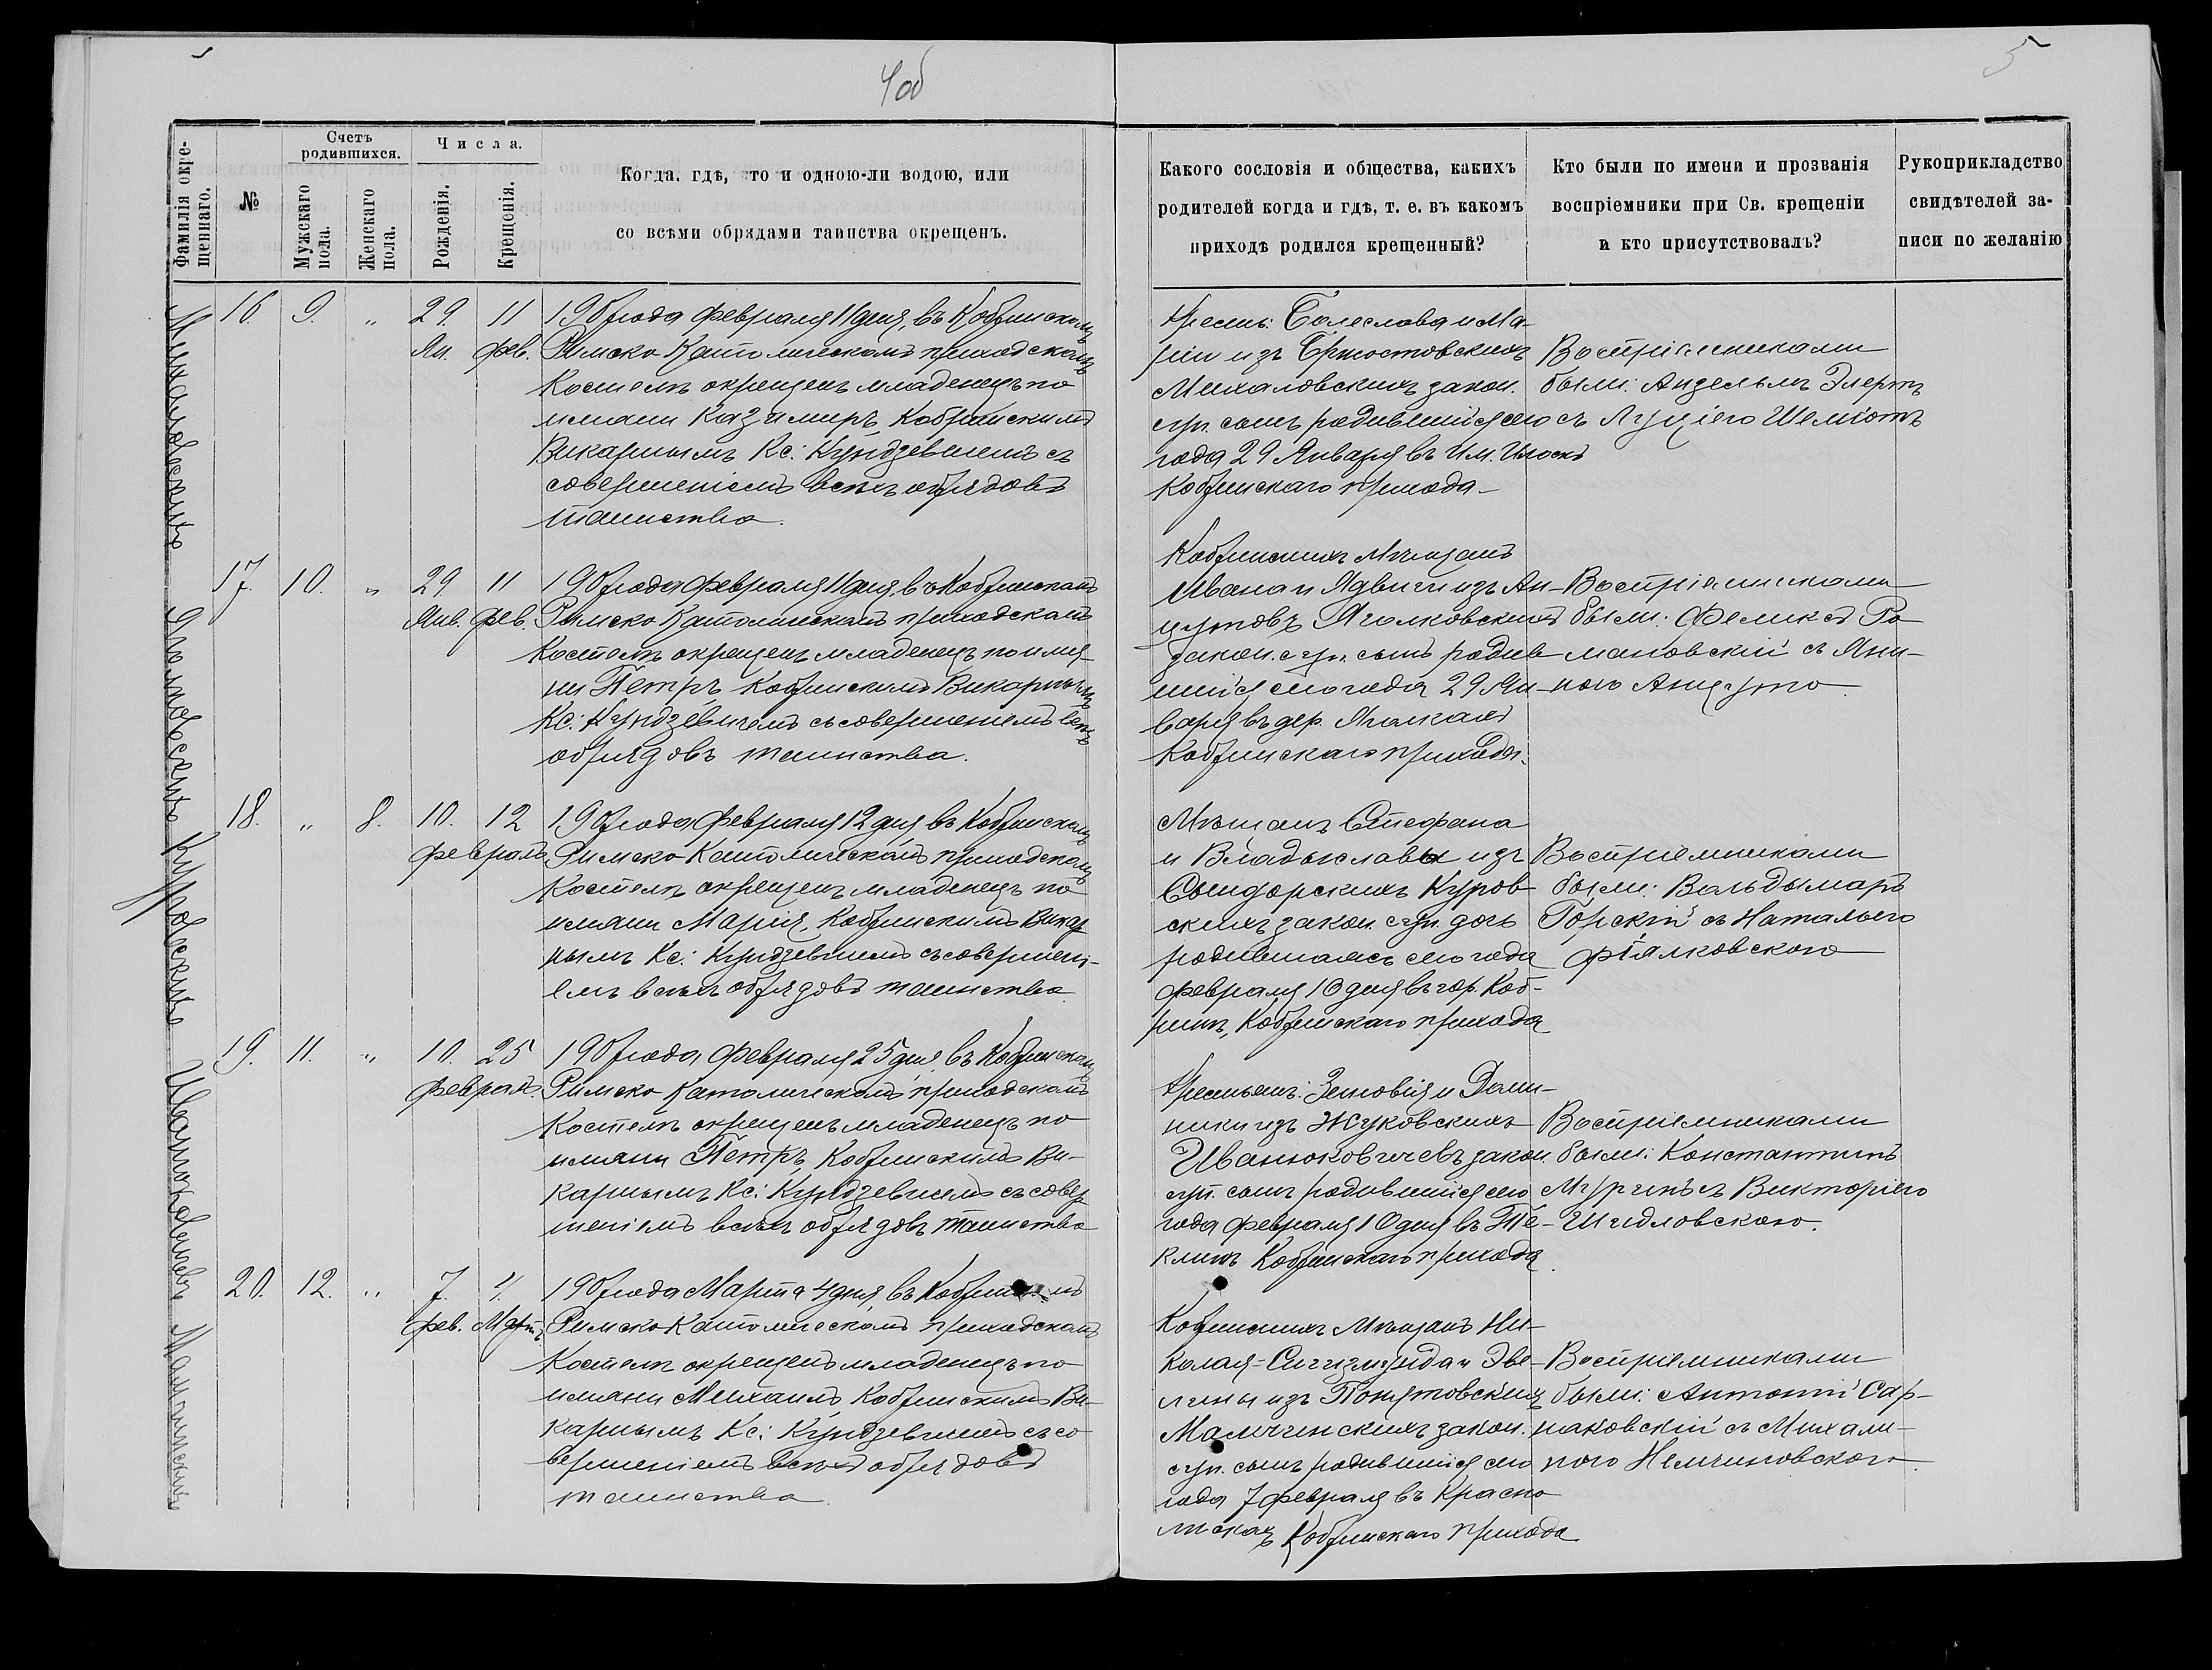 4об
5
Фамилія окре-
щеннаго.
№
Счетъ
родившихся.
Мужскаго
пола.
Женскаго
пола.
Числа.
Рожденія.
Крещенія.
Когда, гдѣ, кто и одною-ли водою, или
со всѣми обрядами таинства окрещенъ.
Какого сословія и общества, какихъ
родителей когда и гдѣ, т. е. въ какомъ
приходѣ родился крещенный?
Кто были по имени и прозванія
воспріемники при Св. крещеніи
и кто присутствовалъ?
Рукоприкладство
свидѣтелей за-
писи по желанію
Михаловскій
16. 9. „ 29. 11
Ян. фев.
года Февраля 11 дня, въ Кобринскомъ
Римско Католическомъ приходскомъ
Костелѣ окрещенъ младенецъ по
имяни Казимиръ, Кобринскимъ
Викарнымъ Кс: Кундзевичемъ съ
совершеніемъ всѣхъ обрядовъ
таинства.
Болеслава и Ма-
ріи изъ
Михаловскихъ закон.
суп. сынъ родившійся сего
года 29 Января въ Им.
Кобринскаго прихода
Воспріемниками
были: Анзельмъ Элертъ
съ Луціею
17. 10. „ 29. 11
Янв. фев.
года Февраля 11 дня, въ Кобринскомъ
Римско Католическомъ приходскомъ
Костелѣ окрещенъ младенецъ по имя-
ни Петръ Кобринскимъ Викарнымъ
Кс: Кундзевичемъ съ совершеніемъ всѣхъ
обрядовъ таинства.
Кобринскихъ Мѣщанъ
Ивана и Ядвиги изъ Ан-
цутовъ Яголковскихъ
закон. суп. сынъ родив
шійся сего года 29 Ян-
варя въ дер. Яголкахъ
Кобринскаго прихода.
Воспріемниками
были: Феликсъ Ро-
мановскій съ Яни-
ною Анцуто
Куровская
18. „ 8. 10. 12
февраля
года Февраля 12 дня въ Кобринскомъ
Римско-Католическомъ приходскомъ
Костелѣ окрещенъ младенецъ по
имяни Марія, Кобринскимъ Викар
нымъ Кс: Кундзевичемъ съ совершені-
емъ всѣхъ обрядовъ таинства
Мѣщанъ Стефана
и Владыславы изъ
Куров-
скихъ закон. суп. дочь
родившаяся сего года
Февраля 10 дня въ гор. Коб-
ринѣ, Кобринскаго прихода
Воспріемниками
были: Вальдымаръ
Горскій съ Натальею
Фіялковскою
Иванюковичъ
19. 11. „ 10. 25
февраля
года Февраля 25 дня, въ Кобринскомъ
Римско Католическомъ приходскомъ
Костелѣ окрещенъ младенецъ по
имяни Петръ, Кобринскимъ Ви-
карнымъ Кс: Кундзевичемъ съ совер
шеніемъ всѣхъ обрядовъ таинства
Крестьянъ: Зеновія и Доми-
ники изъ Жуковскихъ
Иванюковичевъ закон.
суп. сынъ родившійся сего
года Февраля 10 дня въ Те-
клинѣ Кобринскаго прихода
Воспріемниками
были: Константинъ
съ Викторіею
Шидловскою.
20. 12. „ 7. 4.
фев. Март.
года Марта 4 дня, въ
Римско-Католическомъ приходскомъ
Костелѣ окрещенъ младенецъ по
имяни Михаилъ, Кобринскимъ Ви-
карнымъ Кс: Кундзевичемъ съ со
вершеніемъ всѣхъ обрядовъ
таинства.
Кобринскихъ Мѣщанъ Ни-
колая=Сигизмунда и Эве-
лины изъ
закон.
суп. сынъ родившійся сего
года 7 февраля въ
Кобринскаго прихода
Воспріемниками
были: Антоній Сар-
наковскій съ Михали-
ною Немчиновскою